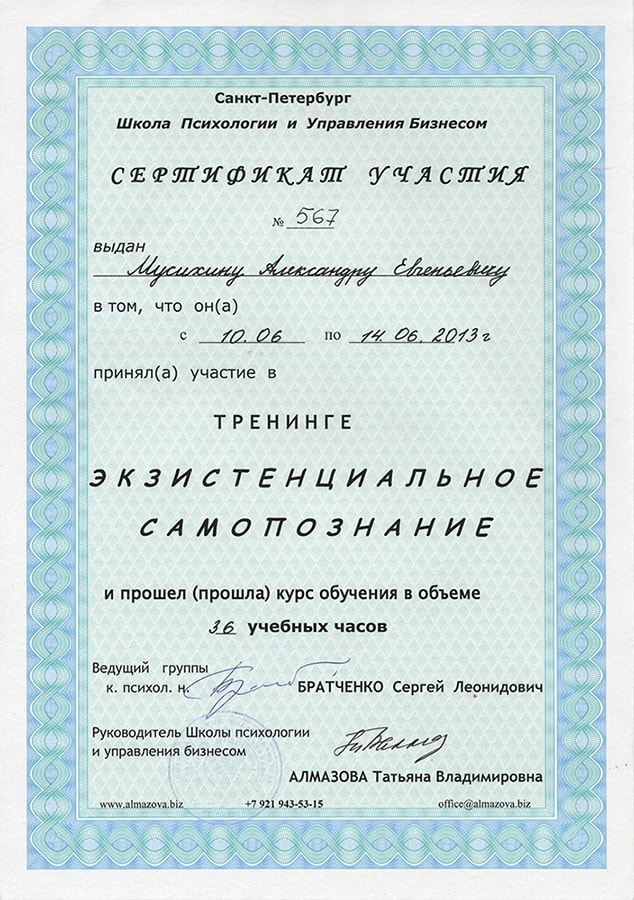 Санкт-Петербург
Школа Психологии и Управления Бизнесом
СЕРТИФИКАТ УЧАСТИЯ
№ 567
выдан
Мусихину Александру Евгеньевичу
в том, что он(а)
с 10.06 по 14.06.2013г
принял(а) участие в
ТРЕНИНГЕ
ЭКЗИСТЕНЦИАЛЬНОЕ
САМОПОЗНАНИЕ
и прошел (прошла) курс обучения в объеме
36 учебных часов
Ведущий группы
к. психол. н. БРАТЧЕНКО Сергей Леонидович
Руководитель Школы психологии
и управления бизнесом
АЛМАЗОВА Татьяна Владимировна
www.almazova.biz +7 921 943-53-15 office@almazova.biz